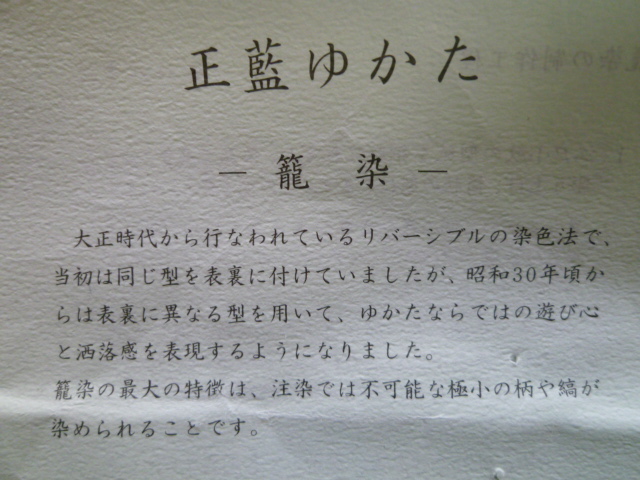 正藍ゆかた
― 籠 染 ―
大正時代から行なわれているリバーシブルの染色法で、
当初は同じ型を表裏に付けていましたが、昭和30年頃か
らは表裏に異なる型を用いて、ゆかたならではの遊び心
と洒落感を表現するようになりました。
籠染の最大の特徴は、注染では不可能な極小の柄や縞が
染められることです。